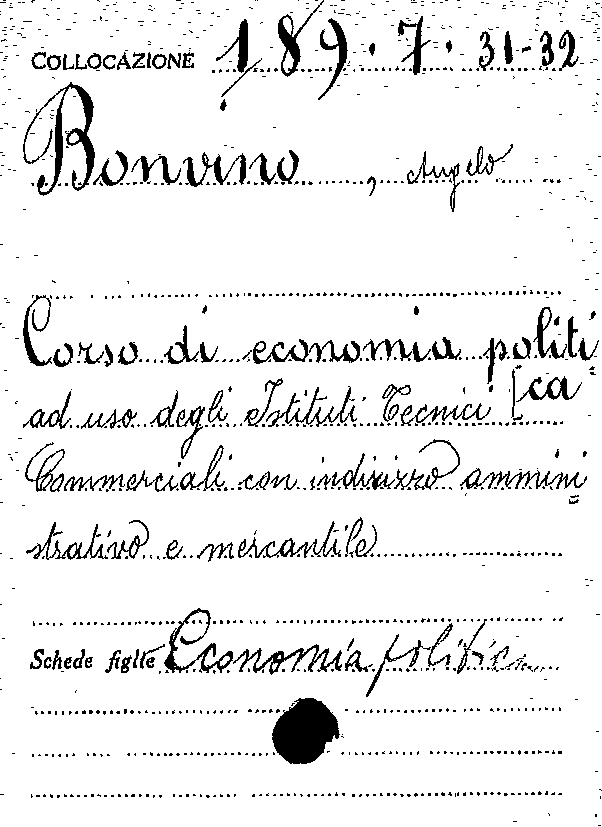 COLLOCAZIONE 189.7.31-32
Bonvino, Angelo
Corso di economia politi=
ad uso degli Istituti Tecnici [ca
Commerciali con indirizzo ammini=
strativo e mercantile
Schede figlie Economia politica